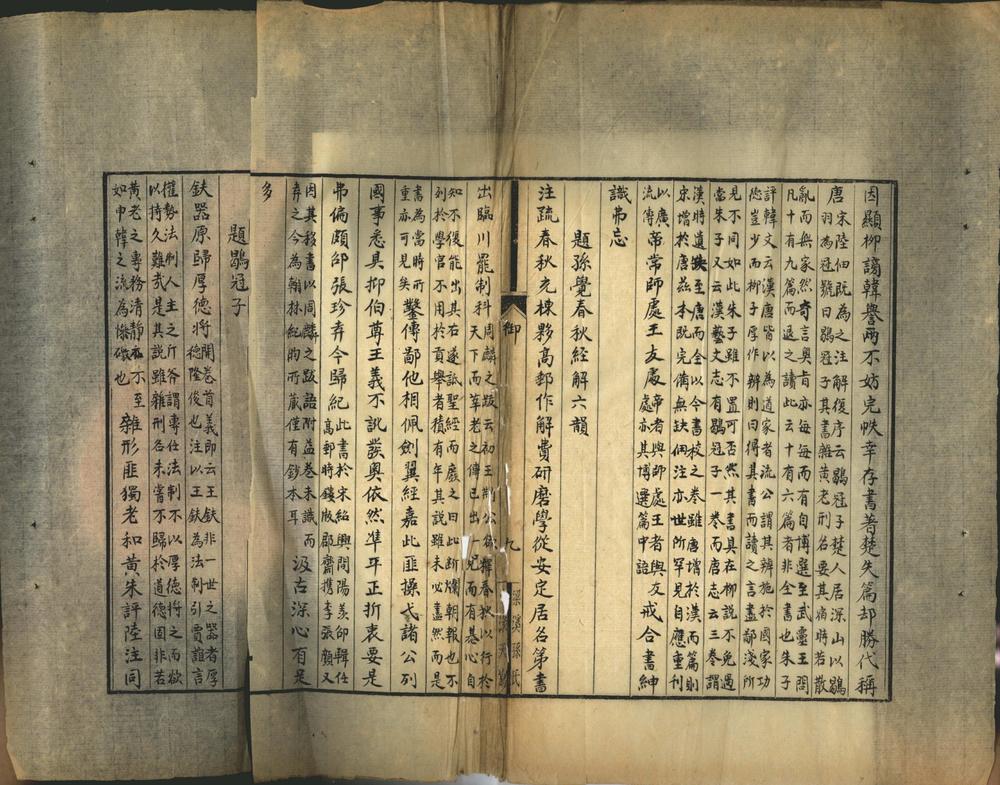 因顯柳謗韓譽兩不妨完帙幸存書著楚失篇却勝代稱
唐
宋陸佃既為之注解復序云鶡冠子楚人居深山以鶡
羽為冠號曰鶡冠子其書雜黃老刑名要其病時若散
亂而無家然奇言奧旨亦每每而有自博選至武靈王問
凡十有九篇而退之讀此云十有六篇者非全書也朱子
評韓文云漢唐皆以為道家者流公謂其辨施於國家功
德豈少而柳子厚作辨則曰得其書而讀之言盡鄙淺所
見不同如此朱子雖不置可否然其書具在柳說不免過
當朱子又云漢藝文志有鶡冠子一卷而唐志云三卷謂
漢時遺缺至唐而全以今書校之卷雖唐增於漢而篇則
宋增於唐茲本既完備無缺佃注亦世所罕見自應重刊
以廣
流傳
帝常師處王友處
帝者與師處王者與友
處亦其博選篇中語
戒合書紳
識弗忘
題孫覺春秋經解六韻
注疏春秋充棟夥高郵作解費研磨學從安定居名第書
御
九
出臨川罷制科
周麟之跋云初王荊公欲釋春秋以行於
天下而莘老之傳已出一見而有惎心自
知不復能出其右遂詆聖經而廢之曰此斷爛朝報也不
列於學官不用於貢舉者積有年其說雖未必盡然而是
書為當時所
重亦可見矣
鑿傳鄙他相佩劍翼經嘉此匪操戈諸公列
國事悉具抑伯尊王義不訛叢奧依然準平正折衷要是
弗偏頗邵張珍弆今歸紀
此書於宋紹興間陽羨邵輯任
高郵時鏤版郡齋攜李張顏又
因其移書以同麟之跋語附益卷末識而
弆之今為翰林紀昀所藏僅有鈔本耳
汲古深心有是
多
題鶡冠子
鈇器原歸厚德將
開卷首義即云王鈇非一世之器者厚
德隆俊也注以王鈇為法制引賈誼言
權勢法制人主之斤斧謂專任法制不以厚德將之而欲
以持久難哉是其說雖雜刑名未嘗不歸於道德固非若
黃老之專務清靜亦不至
如申韓之流為慘礉也
雜形匪獨老和黃朱評陸注同